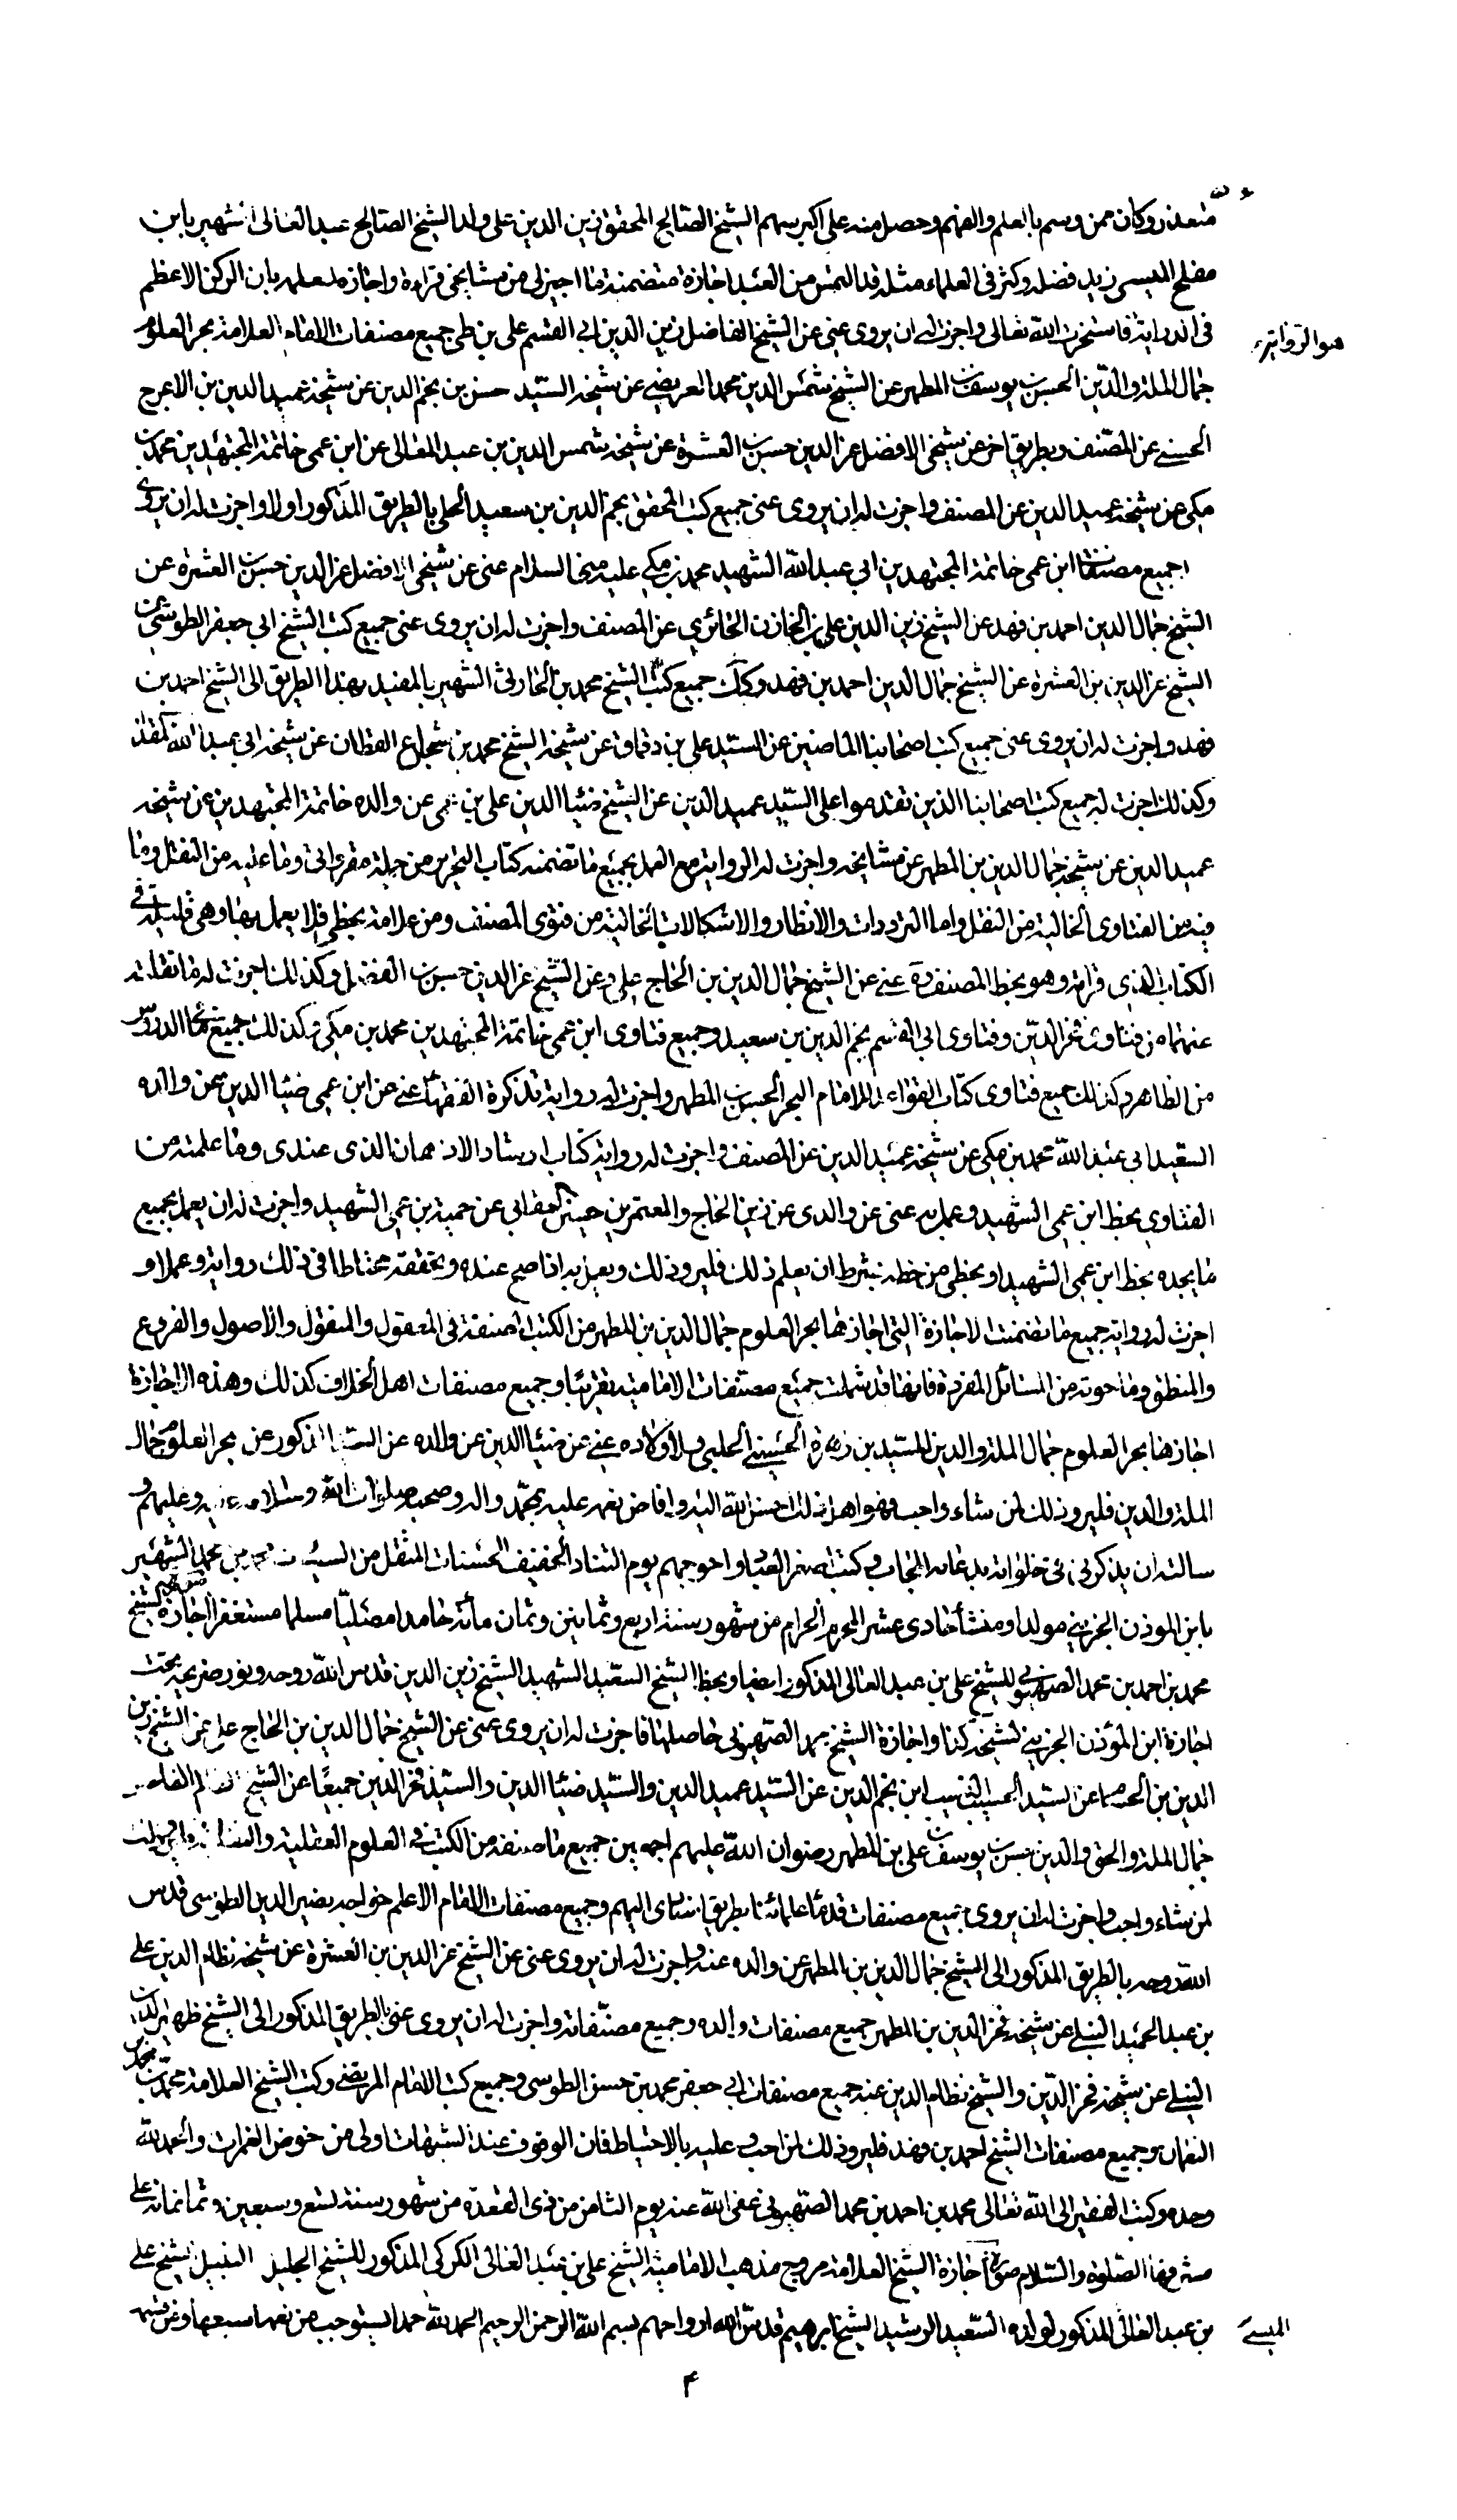 متعذر وكان ممن وسم بالعلم والفهم وحصل منه على اكبر سهم الشيخ الصالح المحقق زين الدين على ولد الشيخ الصالح عبد العالى الشهير بابن
مفلح الميسى زيد فضله وكثر فى العلماء مثله قد التمس من العبد اجازة متضمنة ما اجيز لى من مشايخى قراءة واجازة لعلمه بان الركن الاعظم
فى الدراية هو الرواية فاستخرت الله تعالى واجزت له ان يروى عنى عن الشيخ الفاضل زين الدين ابى القسم على بن طى جميع مصنفات الامام العلامة بحر العلوم
جمال الملة والدين الحسن بن يوسف بن المطهر عن الشيخ شمس الدين محمد العريضى عن شيخه السيد حسن بن نجم الدين عن شيخه عميد الدين بن الاعرج
الحسينى عن المصنف وبطريق اخر عن شيخى الافضل عز الدين حسن بن العشرة عن شيخه شمس الدين بن عبد العالى عن ابن عمى خاتمة المجتهدين محمد بن
مكى عن شيخه عميد الدين عن المصنف واجزت له ان يروى عنى جميع كتب المحقق نجم الدين بن سعيد الحلى بالطريق المذكور اولا واجزت له ان يروى
جميع مصنفات ابن عمى خاتمة المجتهدين ابى عبد الله الشهيد محمد بن مكى عليه منا السلام عنى عن شيخى الافضل عز الدين حسن بن العشرة عن
الشيخ جمال الدين احمد بن فهد عن الشيخ زين الدين على بن الخازن الحائرى عن المصنف واجزت له ان يروى عنى جميع كتب الشيخ ابى جعفر الطوسى عن
الشيخ عز الدين بن العشرة عن الشيخ جمال الدين احمد بن فهد وكك جميع كتب الشيخ محمد بن الحارثى الشهير بالمفيد بهذا الطريق الى الشيخ احمد بن
فهد واجزت له ان يروى عنى جميع كتب اصحابنا الماضين عن السيد على بن دقماق عن شيخه الشيخ محمد بن شجاع القطان عن شيخه ابى عبد الله المقداد
وكذلك اجزت له جميع كتب اصحابنا الذين تقدموا على السيد عميد الدين عن الشيخ ضياء الدين على بن عمى عن والده خاتمة المجتهدين عن شيخه
عميد الدين عن شيخه جمال الدين بن المطهر عن مشايخه واجزت له الرواية مع العمل بجميع ما تضمنه كتاب التحرير من جملة مقرواتى وما عليه من النقل وما
فيه من الفتاوى الخالية من النقل واما الترددات والانظار والاشكالات الخالية من فتوى المصنف ومن علامة بخطى فلا يعمل بها وهى قليلة فى
الكتاب الذى قرأته وهو بخط المصنف عنى عن الشيخ جمال الدين بن الحاج على وعن الشيخ عز الدين حسن بن الفضل وكذلك اجزت له ما نقلته
عنهما من فتاوى فخر الدين وفتاوى ابى القسم نجم الدين بن سعيد وجميع فتاوى ابن عمى خاتمة المجتهدين محمد بن مكى وكذلك جميع الدروس
من الطاهر وكذلك جميع فتاوى كتاب القواعد للامام البحر الحسن بن المطهر واجزت له رواية تذكرة الفقهاء عنى عن ابن عمى ضياء الدين عن والده
السعيد ابى عبد الله محمد بن مكى عن شيخه عميد الدين عن المصنف واجزت له رواية كتاب ارشاد الاذهان الذى عندى وما علمته من
الفتاوى بخط ابن عمى الشهيد وعمل به عنى عن والدى عن زين الحاج والمعتمر بن حسين العقابى عن حمية بن عمى الشهيد واجزت له ان يعمل بجميع
ما يجده بخط ابن عمى الشهيد او بخطى من خطه بشرط ان يعلم ذلك فليرو ذلك ويعمل به اذا صح عنده وتحققه محتاطا فى ذلك رواية وعملا و
اجزت له رواية جميع ما تضمنت الاجازة التى اجازها بحر العلوم جمال الدين بن المطهر من الكتب المصنفة فى المعقول والمنقول والاصول والفروع
والمنطق وما حوته من المسائل المفردة فانها قد شملت جميع مصنفات الامامية تقريبا وجميع مصنفات اهل الخلاف كذلك وهذه الاجازة
اجازها بحر العلوم جمال الملة والدين للسيد بن زهرة الحسينى الحلبى ولاولاده عنى عن ضياء الدين عن والده عن السيد المذكور عن بحر العلوم جمال
الملة والدين فليرو ذلك لمن شاء واحب فهو اهل لذلك احسن الله اليه وافاض نعمه عليه بمحمد واله وصحبه صلوات الله وسلامه عليه وعليهم و
سالته ان يذكرنى فى خلواته بدعائه المجاب وكتب اصغر العباد واحوجهم يوم التناد الخفيف الحسنات الثقيل من السيئات محمد بن محمد الشهير
بابن المؤذن الجزينى مولدا ومنشأ حادى عشر المحرم الحرام من شهور سنة اربع وثمانين وثمان مأئة حامدا مصليا مسلما مستغفرا صورة اجازة الشيخ
محمد بن احمد بن محمد الصهيونى للشيخ على بن عبد العالى المذكور ايضا وبخط الشيخ السعيد الشهيد الشيخ زين الدين قدس الله روحه ونور ضريحه تحت
اجازة ابن المؤذن الجزينى لشيخه كذا واجازة الشيخ محمد الصهيونى حاصلها فاجزت له ان يروى عنى عن الشيخ جمال الدين بن الحاج على عن الشيخ زين
الدين بن الحسام عن السيد الحسيب النسيب ابن نجم الدين عن السيد عميد الدين والسيد ضياء الدين والسيد فخر الدين جميعا عن الشيخ
جمال الملة والحق والدين حسن بن يوسف بن على بن المطهر رضوان الله عليهم اجمعين جميع ما صنفه من الكتب فى العلوم العقلية والنقلية
لمن شاء واحب واجزت له ان يروى جميع مصنفات قدماء علمائنا بطريق اسنادى اليهم وجميع مصنفات الامام الاعلم خواجه نصير الدين الطوسى قدس
الله روحه بالطريق المذكور الى الشيخ جمال الدين بن المطهر عن والده عنه واجزت له ان يروى عنى عن الشيخ عز الدين بن العشرة عن شيخه نظام الدين على
بن عبد الحميد النيلى عن شيخه فخر الدين بن المطهر جميع مصنفات والده وجميع مصنفاته واجزت له ان يروى عنى بالطريق المذكور الى الشيخ ظهير الدين
النيلى عن شيخه فخر الدين والشيخ نظام الدين عنه جميع مصنفات ابى جعفر محمد بن حسن الطوسى وجميع كتب الامام المرتضى وكتب الشيخ العلامة محمد بن محمد بن
النعمان وجميع مصنفات الشيخ احمد بن فهد فليرو ذلك لمن احب وعليه بالاحتياط فان الوقوف عند الشبهات اولى من خوض الغمرات والحمد لله
وحده وكتب الفقير الى الله تعالى محمد بن احمد بن محمد الصهيونى عفى الله عنه يوم الثامن من ذى القعدة من شهور سنة تسع وسبعين وثمانمائة على
مشرفها الصلوة والسلام صورة اجازة الشيخ العلامة مروج مذهب الامامية الشيخ على بن عبد العالى الكركى المذكور للشيخ الجليل النبيل الشيخ على
بن عبد العالى الميسى المذكور لولده السعيد الرشيد الشيخ ابرهيم قدس الله ارواحهم بسم الله الرحمن الرحيم الحمد لله حمدا يستوجب من نعمه
٤